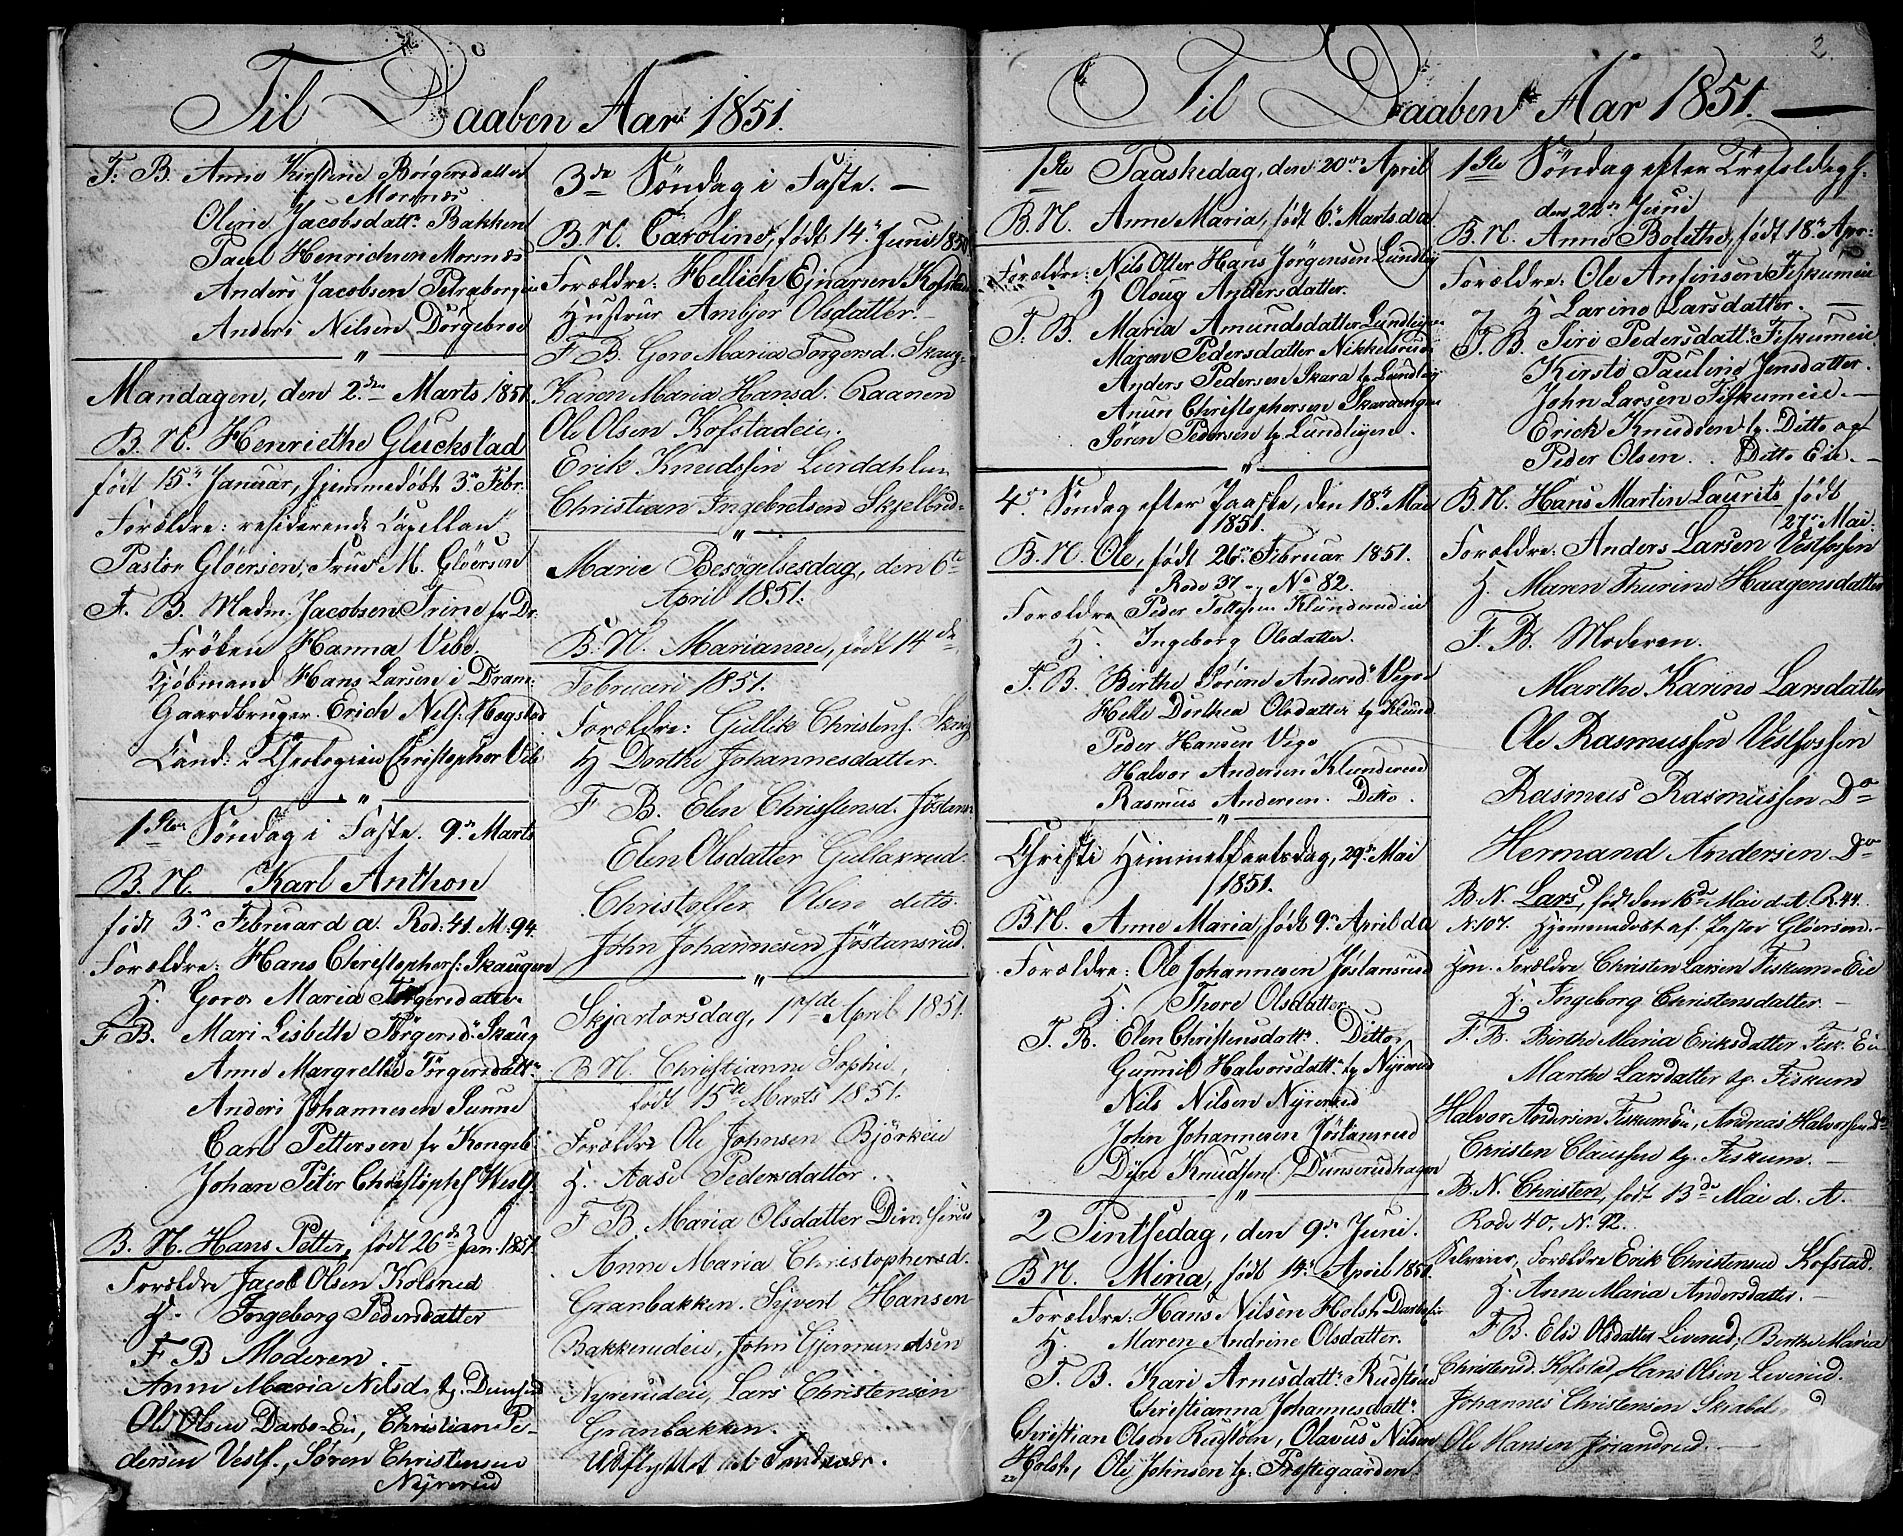 Til Daaben Aar 1851.
F. B. Anne Kirstine Börgersdatter
Mormoes
Oline Jacobsdattr. Bakken
Paul Henricksen Mormoes
Anders Jacobsen
Anders Nilsen Dörgebroe
"
Mandagen, den 2den Marts 1851
B. N. Henriethe Gluckstad
født 15de Januar, hjemmedøbt 3de Febr.
Forældre: residerende Capellan
Pastor Gløersen, Frue M. Gløersen
F. B. Madm. Jacobsen Trine fr Dr.
Fröken Hanna Vibe,
Kjøbmand Hans Larsen i Dram:
Gaardbruger Erich Nels: Hogstad
Cand: i Theologien Christopher Vibe
"
1ste Søndag i Faste. 9de Marts
B. N. Karl Anthon
født 3de Februar d. a. Rod: 41. N: 94.
Forældre: Hans Christophers: Skaugen
H. Goro Maria Torgersdatter
F B. Mari Lisbeth Törgersdr Skaug
Anne Margrethe Törgersdattr
Anders Johannesen Sunne
Carl Pettersen fr Kongsb
Johan Peter Christophs Westf.
B. N. Hans Petter, født 26de Jan. 1851.
Forældre Jacob Olsen Kolsrud
H. Ingeborg Pedersdatter
F B Moderen.
Anne Maria Nilsd. tj. Dunsrud
Ole Olsen Darbo-Eie, Christian Pe-
dersen Vestf., Søren Christensen
Nyrerud
3de Søndag i Faste. —
B. N. Caroline, født 14de Junii 1850
Forældre: Hellich Ejnarsen Kofstad
Hustrue Ambjør Olsdatter. —
F B. Goro Maria Torgersd. Skaug
Karen Maria Hansd: Raanen
Ole Olsen Kofstadeie,
Erik Knudssen Lurdahlen
Christian Ingebretsen Skjelbred.
"
Marie Besøgelsesdag, den 6te
April 1851.
B. N. Marianne, født 14de
Februari 1851.
Forældre: Gullik Christens. Skoug
H Dorthe Johannesdatter.
F B. Elen Christensd. Jöstans.
Elen Olsdatter Gullaxrud.
Christoffer Olsen ditto.
John Johannesen Jöstansrud.
"
Skjærtorsdag, 17de April 1851.
B. N. Christianne Sophie,
født 15de Marts 1851.
Forældre Ole Johnsen Björkeie
H. Aase Pedersdatter.
F B Maria Olsdatter
Anne Maria Christophersd.
Granbakken. Syvert Hansen
Bakkerudeie, John Gjermundsen
Nyrerudeie, Lars Christensen
Granbakken.
Udflyttet til Sandsvær.
2
Til Daaben Aar 1851. —
1ste Paaskedag, den 20de April
B. N. Anne Maria, født 6te Marts d a
Forældre: Nils Otter Hans Jörgensen Lundby
H Oloug Andersdatter.
F. B. Maria Amundsdatter Lundby
Maren Pedersdatter Nikkelsrud
Anders Pedersen Skara tj. Lundby
Anun Christophersen Skaraengen
Søren Pedersen tj. Lundbyen.
"
4de Søndag efter Paaske, den 18de Mai
1851.
B. N. Ole, født 26de Februar 1851.
Rode 37 —, No 82.
Forældre Peder Tollefsen Klunderudeie
H. Ingeborg Olsdatter.
F. B. Birthe Sörine Andersd. Vego
Helle Dorthea Olsdatter tj Klund
Peder Hansen Vego
Halvor Andersen Klunderud
Rasmus Andersen. Ditto.
"
Christi Himmelfartsdag, 29de Mai
1851.
B. N. Anne Maria, født 9de April d a
Forældre: Ole Johannesen Jöstansrud
H. Thore Olsdatter
F. B. Elen Christensdattr. Ditto
Gunnil Halvorsdattr. tj Nyrerud
Nils Nilsen Nyrerud
John Johannesen Jöstansrud
Dyre Knudsen Dunserudhagen
"
2 Pintsedag, den 9de Juni.
B. N. Mina, født 14de April 1851.
Forældre: Hans Nilsen Holst Darboeie
H. Maren Andrine Olsdatter.
F. B. Kari Arnesdattr. Rudstøen
Christianna Johannesdattr
Christian Olsen Rudstøen, Olavus Nilsen
Holst, Ole Johnsen tj: Præstegaarden.
22
1ste Søndag efter Trefoldigh.
den 22de Juni
B. N. Anne Bolethe, født 18de Apr:
Forældre: Ole Anfinsen Fiskumeie
H Larine Larsdatter. —
F. B. Siri Pedersdattr: Fiskumeie
Kirste Pauline Jensdatter.
John Larsen Fiskumeie. —
Erick Knudsen tj. Ditto og
Peder Olsen. Ditto Eie. —
B. N. Hans Martin Laurits født
27de Mai.
Forældre: Anders Larsen Vestfossen
H. Maren Thurine Haagensdatter
F. B. Moderen.
Marthe Karine Larsdatter
Ole Rasmussen Vestfossen
Rasmus Rasmussen Do
Hermand Andersen Do
B. N. Lars, født den 16de Mai d. A. R. 44.
N. 107. Hjemmedøbt af Pastor Gløersen. —
Forældre Christen Larsen Fiskum-Eie
H. Ingeborg Christensdatter —
F. B. Birthe Maria Eriksdatter Fisk. Eie
Marthe Larsdatter tj. Fiskum
Halvor Andersen FiskumEie, Andreas Halvorsen do
Christen Claussen tj. Fiskum. —
B. N. Christen, født 13de Mai d. A.
Rode 40, N. 92.
Selveier, Forældre Erik Christensen Kofstad.
H. Anne Maria Andersdatter. —
F B. Else Olsdatter Liverud, Berthe Maria
Christensd. Kofstad, Hans Olsen Liverud.
Johannes Christensen
Ole Hansen —